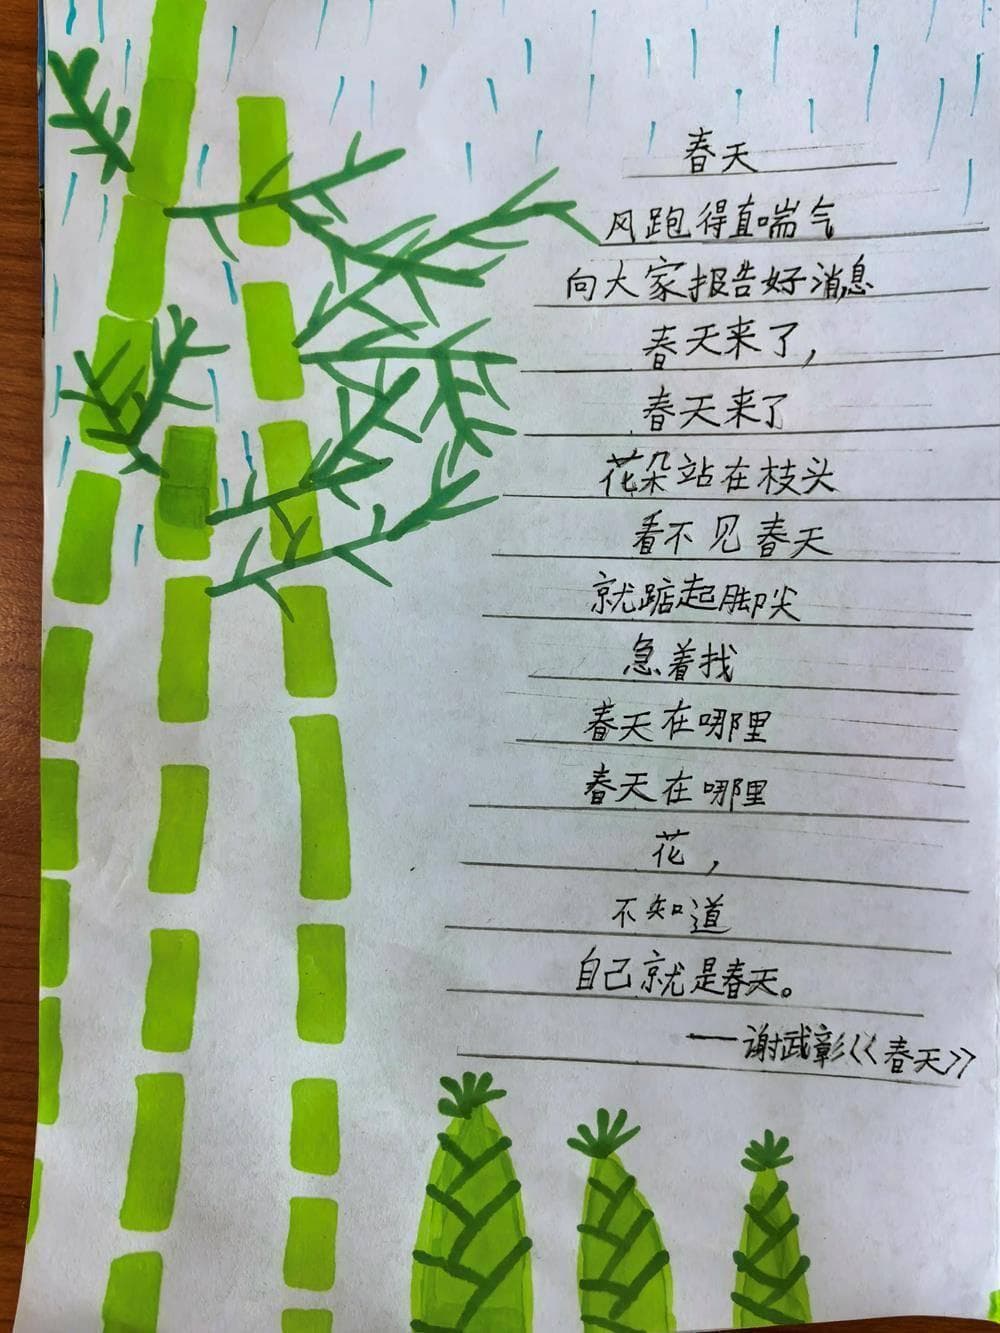 春天
风跑得直喘气
向大家报告好消息
春天来了,
春天来了
花朵站在枝头
看不见春天
就踮起脚尖
急着找
春天在哪里
春天在哪里
花,
不知道
自己就是春天。
——谢武彰《春天》